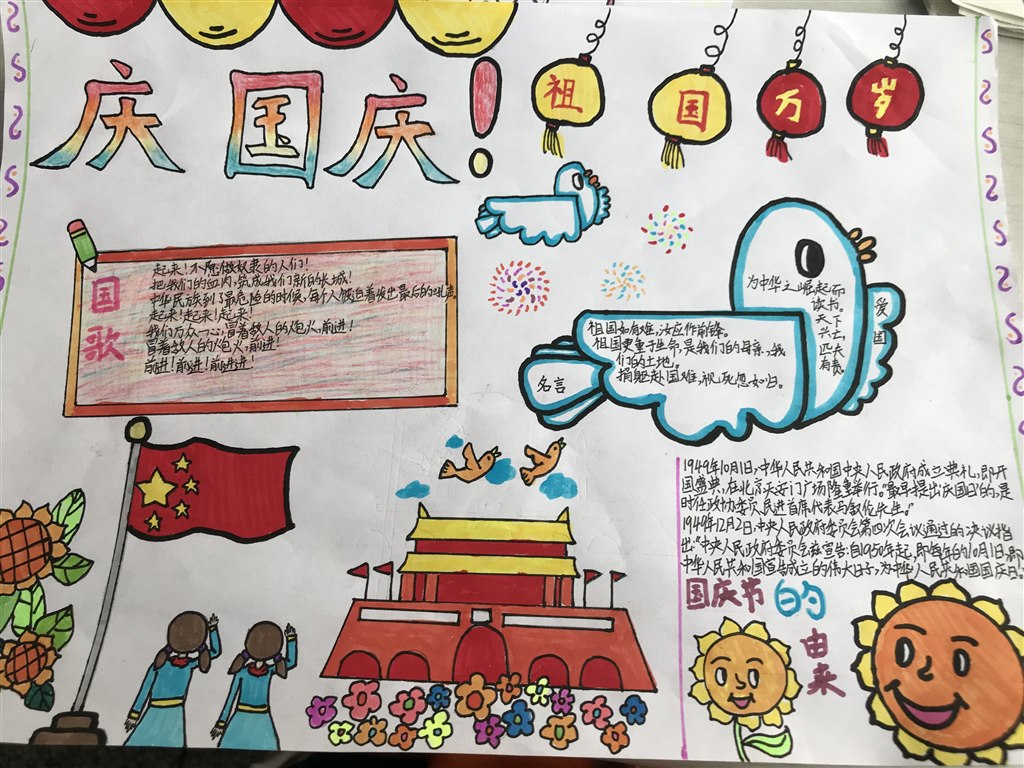 庆国庆!
祖国万岁
国歌
起来!不愿做奴隶的人们!
把我们的血肉,筑成我们新的长城!
中华民族到了最危险的时候,每个人被迫着发出最后的吼声。
起来!起来!起来!
我们万众一心,冒着敌人的炮火,前进!
冒着敌人的炮火,前进!
前进!前进!前进进!
为中华之崛起而
读书。
天下
兴亡,
匹夫
有责。
爱国
名言
祖国如有难,汝应作前锋。
祖国更重于生命,是我们的母亲,我
们的土地。
捐躯赴国难,视死忽如归。
1949年10月1日,中华人民共和国中央人民政府成立典礼,即开
国盛典,在北京天安门广场隆重举行。"最早提出庆国日"的,是
时任政协委员民进首席代表马叙伦先生。"
1949年12月2日,中央人民政府委员会第四次会议通过的决议指
出:"中央人民政府委员会兹宣告:自1950年起,即每年的10月1日,即
中华人民共和国宣告成立的伟大日子,为中华人民共和国国庆日。"
国庆节的
由来